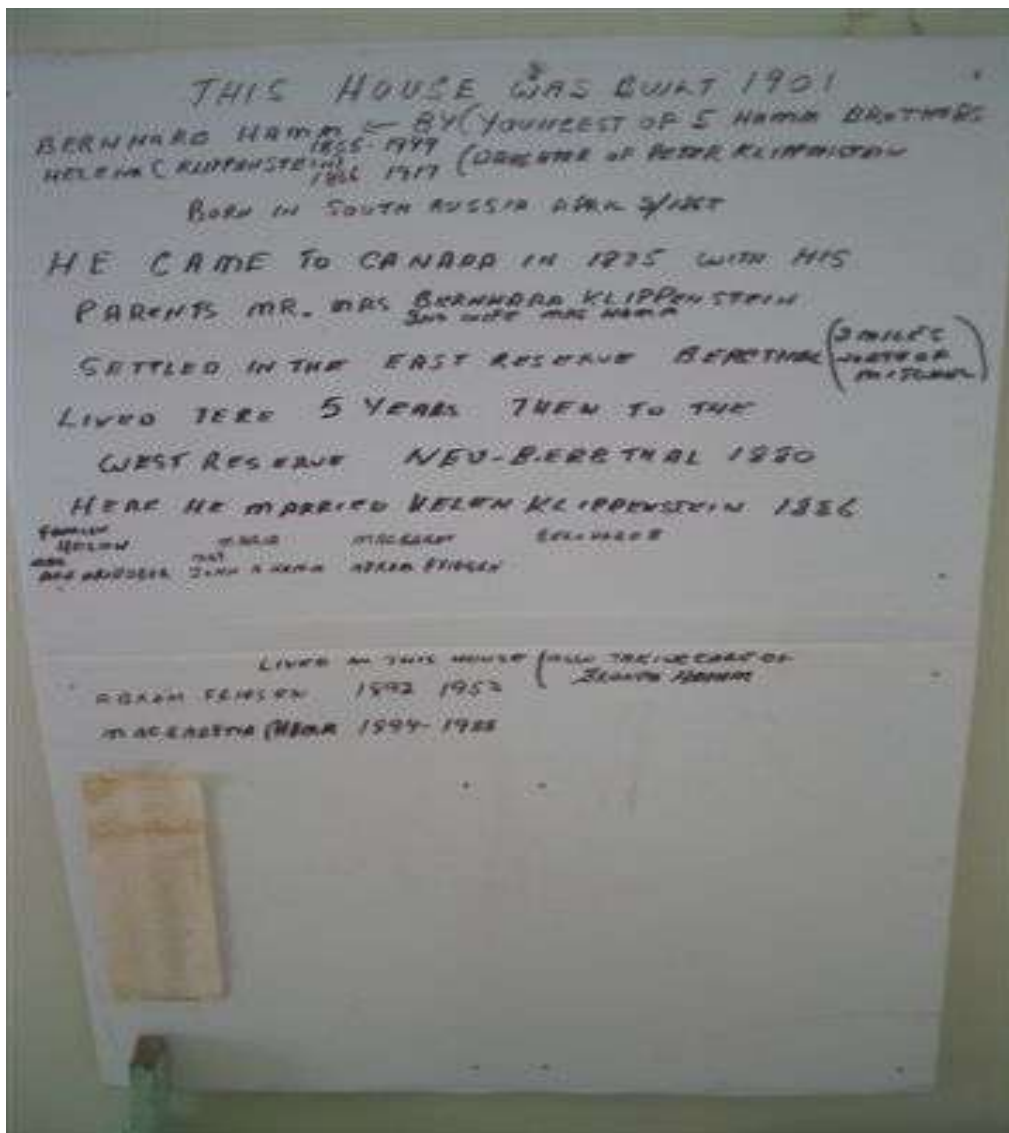 THIS HOUSE WAS BUILT 1901
BERNHARD HAMM BY (YOUNGEST OF 5 HAMM BROTHERS
1865-1944
HELENA (KLIPPENSTEIN) (DAUGHTER OF PETER KLIPPENSTEIN
1866 1917
BORN IN SOUTH RUSSIA APRIL
HE CAME TO CANADA IN 1875 WITH HIS
PARENTS MR. MRS BERNHARD KLIPPENSTEIN
2ND WIFE MRS HAMM
SETTLED IN THE EAST RESERVE BERGTHAL (3 MILES
NORTH OF
MITCHELL)
LIVED TERE 5 YEARS THEN TO THE
WEST RESERVE NEU-BERGTHAL 1880
HERE HE MARRIED HELEN KLIPPENSTEIN 1886
FAMILY
HELEN MARIA MARGARET BERNHARD
MRS MRS
JOHN HAMM ABRAM FRIESEN
LIVED IN THIS HOUSE (ALSO TAKING CARE OF
HAMM
ABRAM FRIESEN 1892 1952
MARGARETHA (HAMM 1894-1988